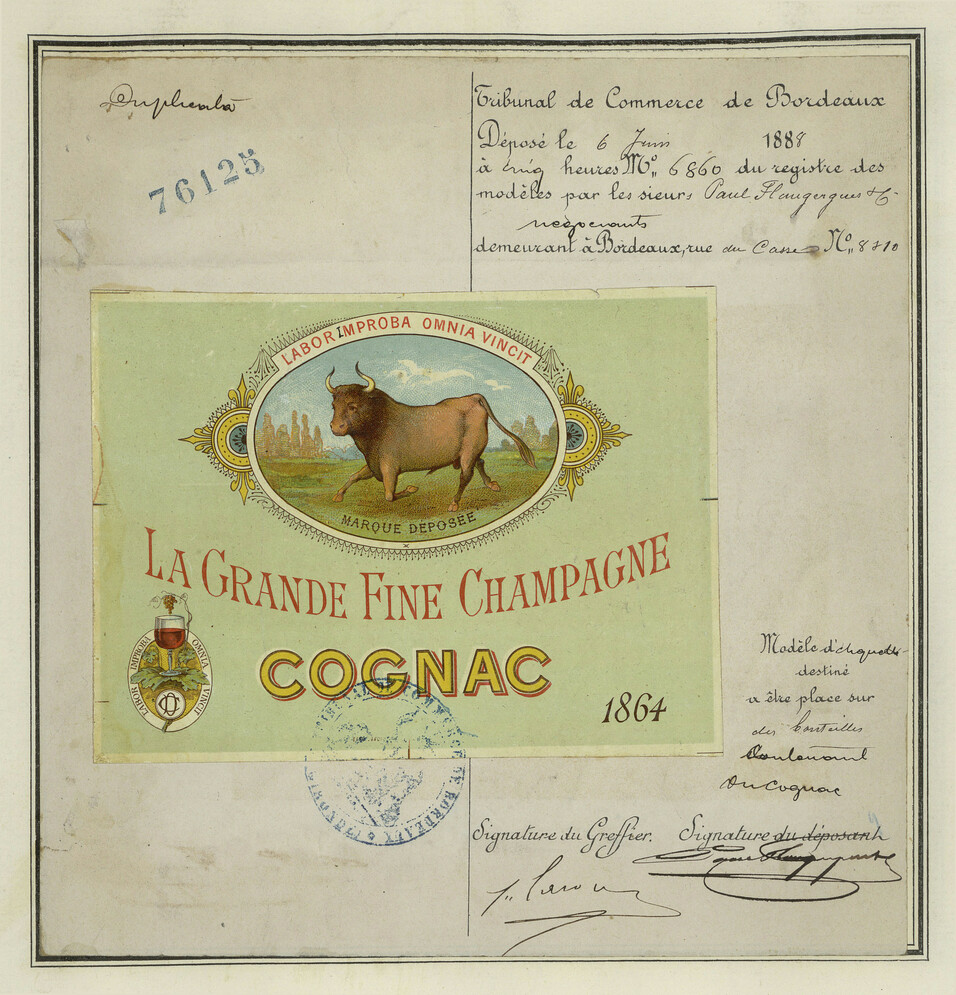 Duplicata
76125
Tribunal de Commerce de Bordeaux
Déposé le 6 Juin 1888
à cinq heures No 6860 du registre des
modèles par les sieurs Paul Flaugergues & Cie
négociants
demeurant à Bordeaux, rue du Casse No 8 & 10
LABOR IMPROBA OMNIA VINCIT
MARQUE DÉPOSÉE
LA GRANDE FINE CHAMPAGNE
COGNAC
1864
LABOR IMPROBA OMNIA VINCIT
Modèle d'étiquette
destiné
a être place sur
des bouteilles
contenant
du cognac
Signature du Greffier. Signature du déposant